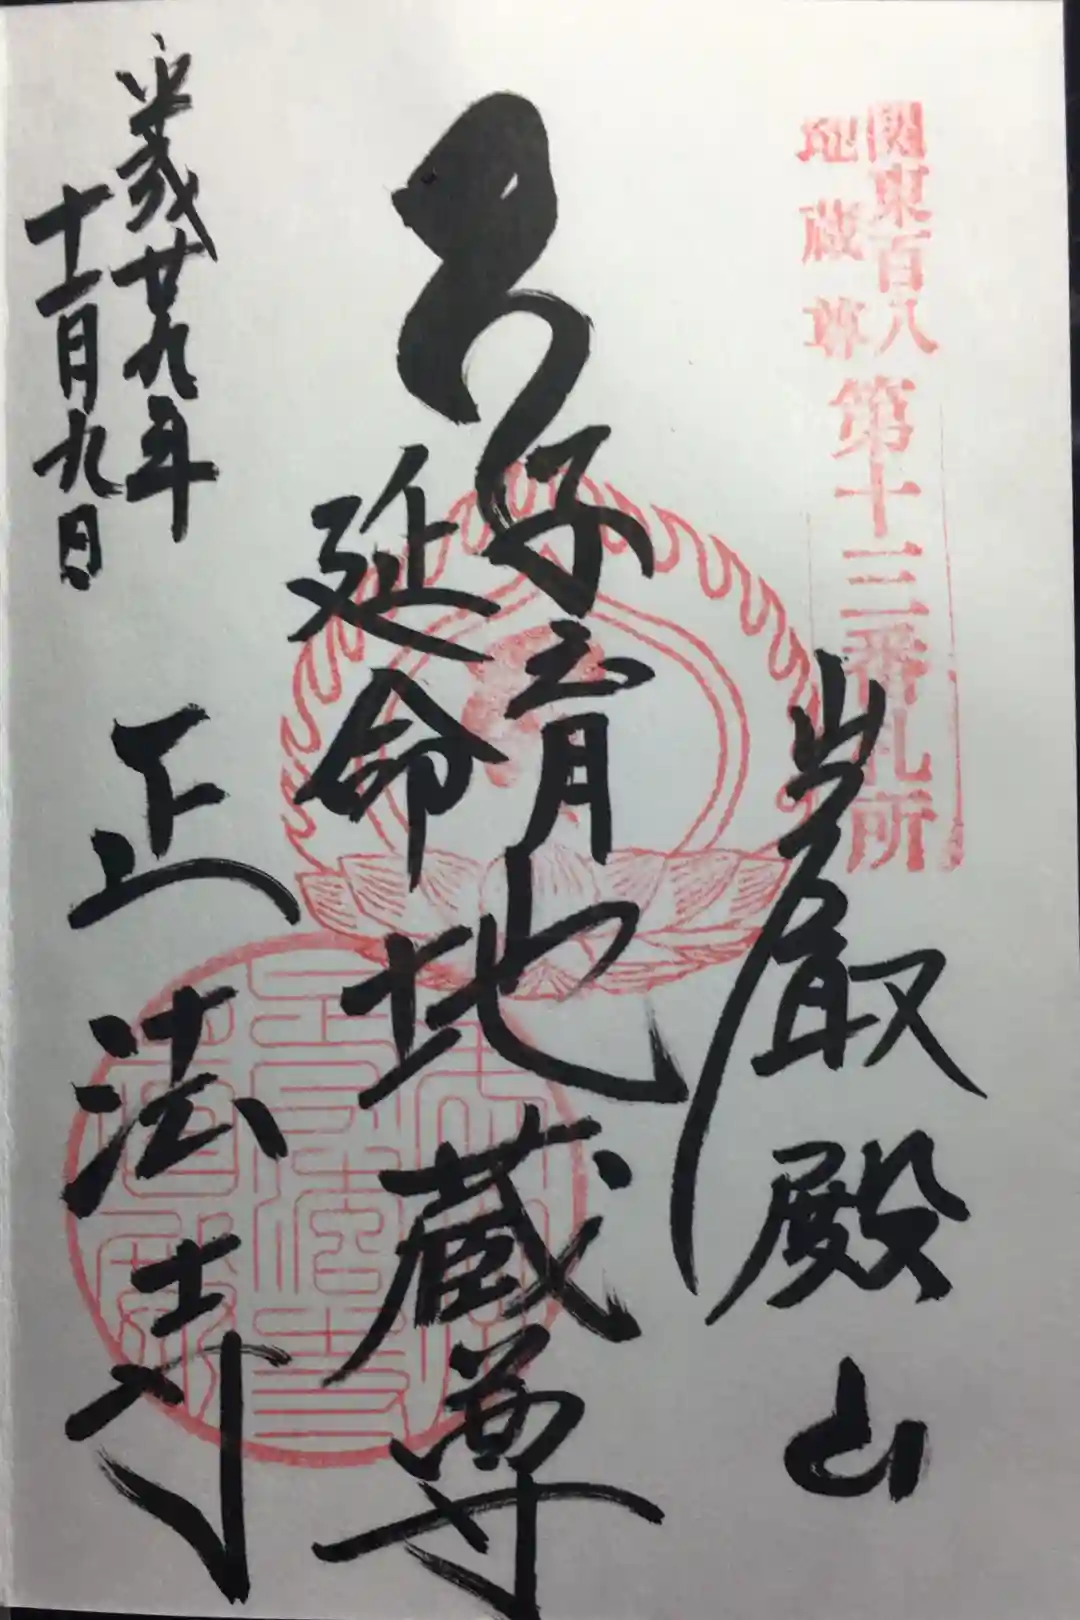 関東百八
地蔵尊
第十三番札所
岩殿山
子育
延命
地蔵尊
正法寺
平成廿九年
十一月九日